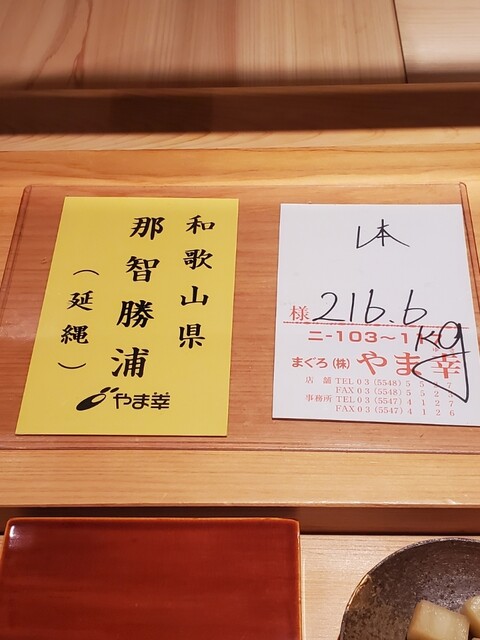 和歌山県
那智勝浦
(延縄)
やま幸
1本
様 216.6kg
ニ-103~1
まぐろ(株) やま幸
店舗 TEL 03(5548)5
FAX 03(5548)552
事務所 TEL 03(5547)412
FAX 03(5547)4126